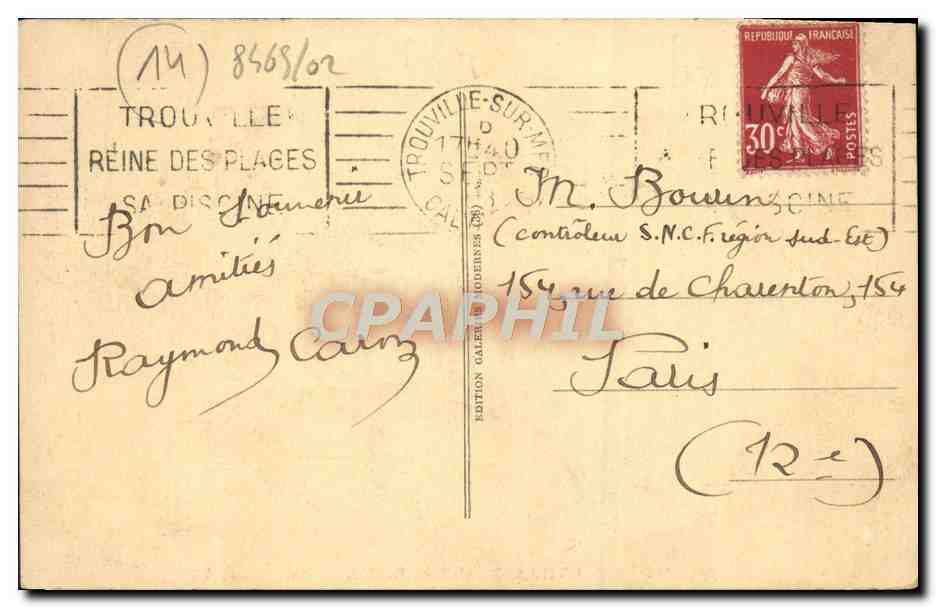 (14) 8469/02
TROUVILLE
REINE DES PLAGES
SA PISCINE
TROUVILLE-SUR-M
17H40
SEPT
CAL
REPUBLIQUE FRANÇAISE
30c
POSTES
ROUVILLE
Bon Souvenir
amitiés
Raymond Caron
EDITION GALERIES MODERNES (38)
M. Boulin
(contrôleur S.N.C.F. région sud-Est)
154, rue de Charenton, 154
Paris
(12e)
CPAPHIL